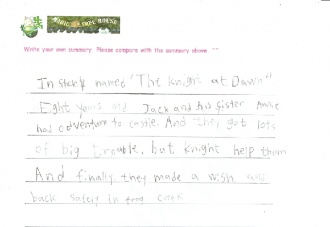 MAGIC TREE HOUSE
Write your own summary. Please compare with the summary above ^^
In story named "The Knight at Dawn"
Eight years old Jack and his sister Annie
had adventure to castle. And they got lots
of big trouble, but knight help them
And finally, they made a wish and
back safely in frog creek